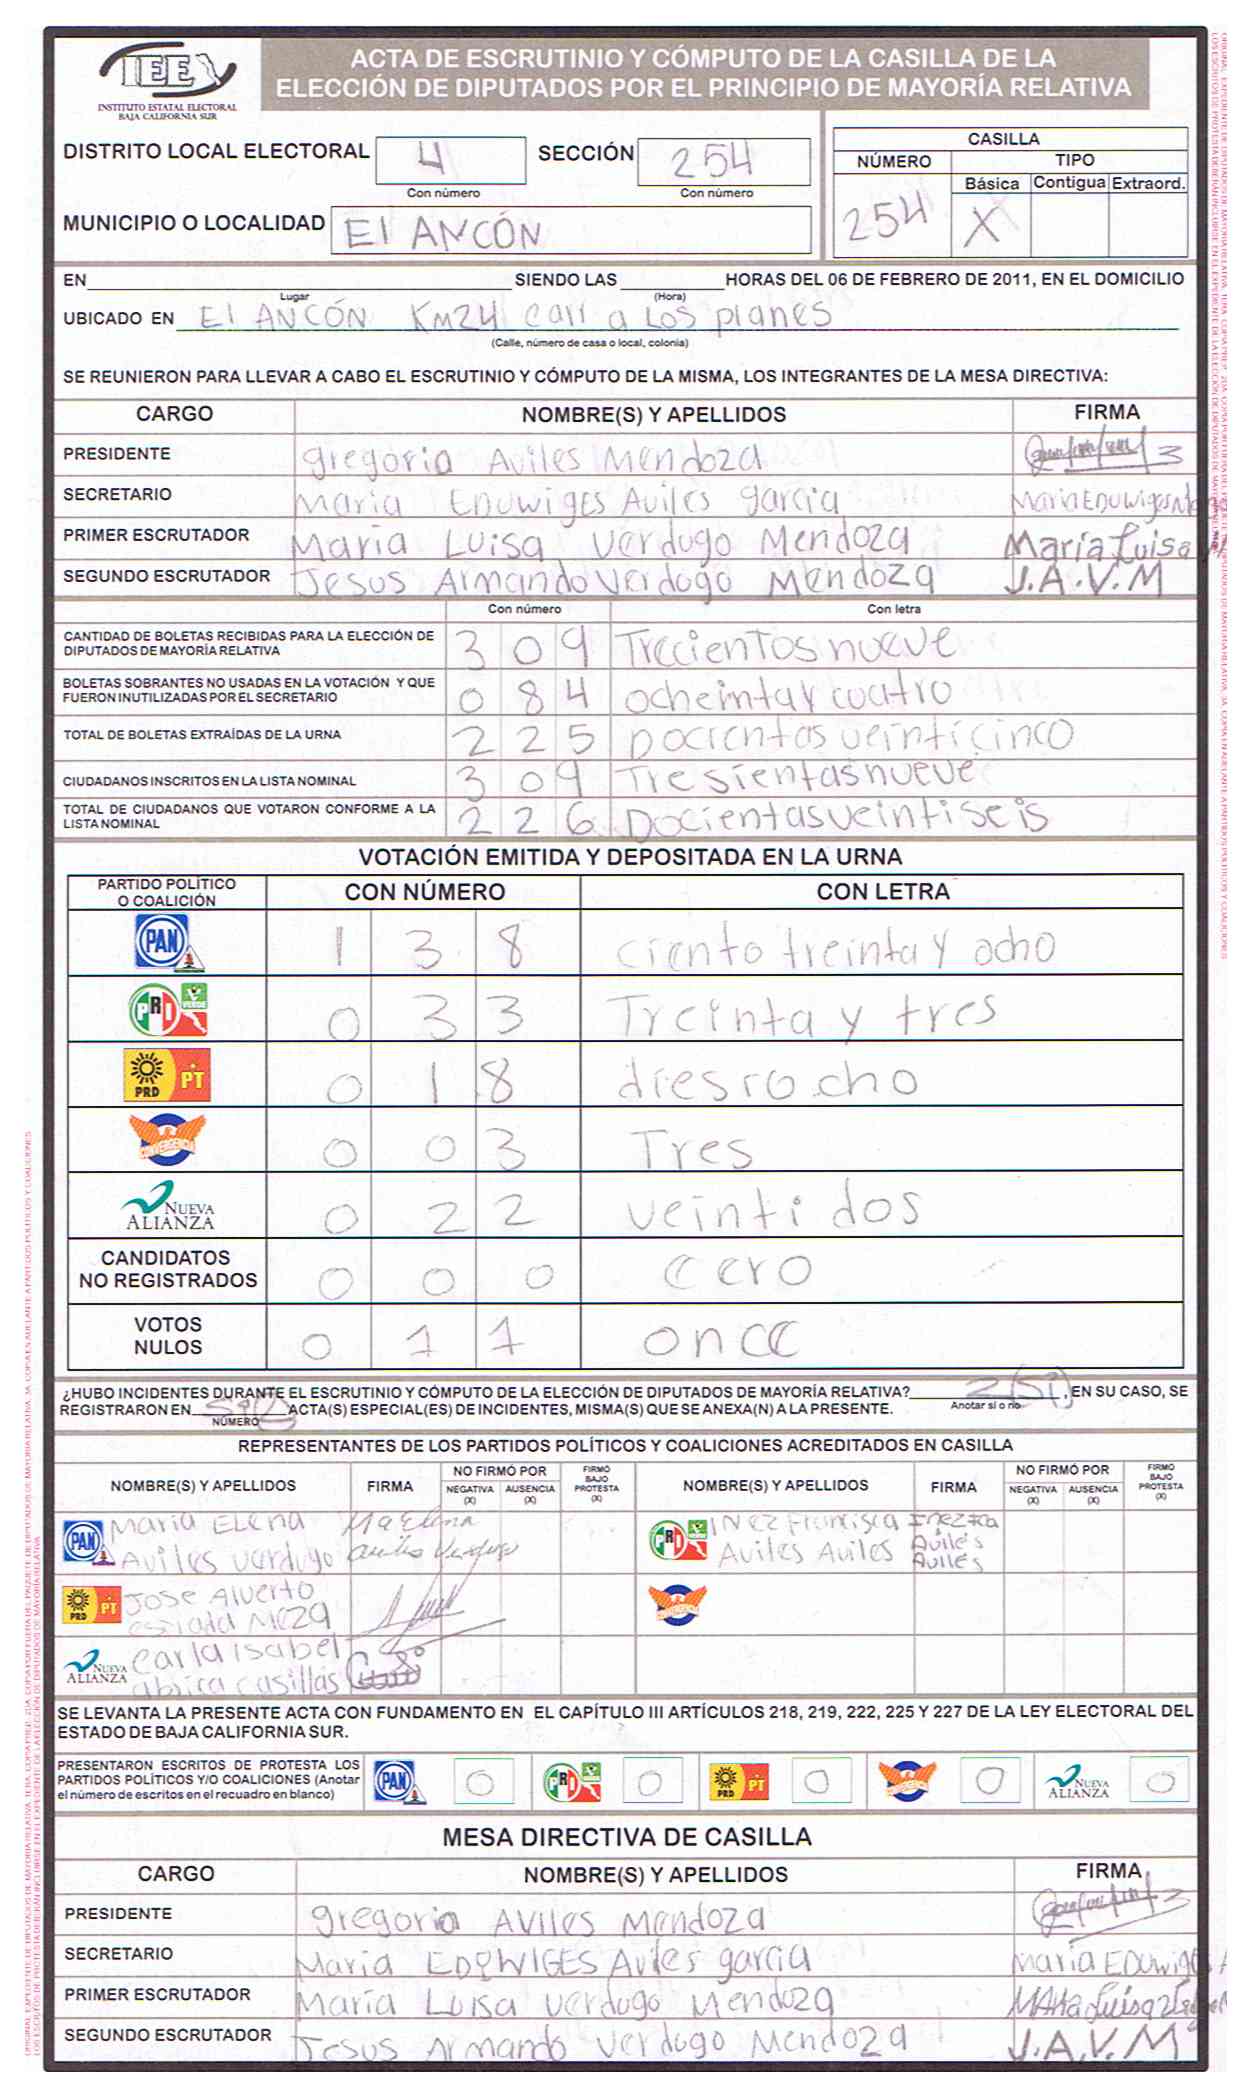 IEE
INSTITUTO ESTATAL ELECTORAL
BAJA CALIFORNIA SUR
ACTA DE ESCRUTINIO Y CÓMPUTO DE LA CASILLA DE LA
ELECCIÓN DE DIPUTADOS POR EL PRINCIPIO DE MAYORÍA RELATIVA
DISTRITO LOCAL ELECTORAL 4 SECCIÓN 254
Con número Con número
MUNICIPIO O LOCALIDAD El ANCÓN
CASILLA
NÚMERO TIPO
Básica Contigua Extraord.
254 X
EN SIENDO LAS HORAS DEL 06 DE FEBRERO DE 2011, EN EL DOMICILIO
Lugar (Hora)
UBICADO EN El ANCÓN KM24 carr a Los planes
(Calle, número de casa o local, colonia)
SE REUNIERON PARA LLEVAR A CABO EL ESCRUTINIO Y CÓMPUTO DE LA MISMA, LOS INTEGRANTES DE LA MESA DIRECTIVA:
CARGO NOMBRE(S) Y APELLIDOS FIRMA
PRESIDENTE gregoria Aviles Mendoza
SECRETARIO Maria EDUWIGES Aviles garcia Maria EDUwiges
PRIMER ESCRUTADOR Maria Luisa Verdugo Mendoza María Luisa
SEGUNDO ESCRUTADOR Jesus Armando Verdogo Mendoza J.A.V.M
Con número Con letra
CANTIDAD DE BOLETAS RECIBIDAS PARA LA ELECCIÓN DE
DIPUTADOS DE MAYORÍA RELATIVA 3 0 9 Trecientos nueve
BOLETAS SOBRANTES NO USADAS EN LA VOTACIÓN Y QUE
FUERON INUTILIZADAS POR EL SECRETARIO 0 8 4 ocheinta y cuatro
TOTAL DE BOLETAS EXTRAÍDAS DE LA URNA 2 2 5 Docientas veinticinco
CIUDADANOS INSCRITOS EN LA LISTA NOMINAL 3 0 9 Tresientas nueve
TOTAL DE CIUDADANOS QUE VOTARON CONFORME A LA
LISTA NOMINAL 2 2 6 Docientas veintiseis
VOTACIÓN EMITIDA Y DEPOSITADA EN LA URNA
PARTIDO POLÍTICO
O COALICIÓN CON NÚMERO CON LETRA
PAN 1 3 8 ciento treinta y ocho
PRI VERDE 0 3 3 Treinta y tres
PRD PT 0 1 8 diesiocho
CONVERGENCIA 0 0 3 Tres
NUEVA ALIANZA 0 2 2 veinti dos
CANDIDATOS
NO REGISTRADOS 0 0 0 cero
VOTOS
NULOS 0 1 1 once
¿HUBO INCIDENTES DURANTE EL ESCRUTINIO Y CÓMPUTO DE LA ELECCIÓN DE DIPUTADOS DE MAYORÍA RELATIVA? 2 (Si), EN SU CASO, SE
Anotar sí o no
REGISTRARON EN ACTA(S) ESPECIAL(ES) DE INCIDENTES, MISMA(S) QUE SE ANEXA(N) A LA PRESENTE.
NÚMERO
REPRESENTANTES DE LOS PARTIDOS POLÍTICOS Y COALICIONES ACREDITADOS EN CASILLA
NOMBRE(S) Y APELLIDOS FIRMA NO FIRMÓ POR NEGATIVA (X) AUSENCIA (X) FIRMÓ BAJO PROTESTA (X) NOMBRE(S) Y APELLIDOS FIRMA NO FIRMÓ POR NEGATIVA (X) AUSENCIA (X) FIRMÓ BAJO PROTESTA (X)
PAN Maria Elena Ma Elena PRI VERDE INez Francisca
Aviles verdugo Aviles Verdugo Aviles Aviles Aviles Aviles
PRD PT Jose Alverto CONVERGENCIA
estrada Meza
NUEVA ALIANZA carla isabel
casillas
SE LEVANTA LA PRESENTE ACTA CON FUNDAMENTO EN EL CAPÍTULO III ARTÍCULOS 218, 219, 222, 225 Y 227 DE LA LEY ELECTORAL DEL
ESTADO DE BAJA CALIFORNIA SUR.
PRESENTARON ESCRITOS DE PROTESTA LOS
PARTIDOS POLÍTICOS Y/O COALICIONES (Anotar
el número de escritos en el recuadro en blanco) PAN 0 PRI VERDE 0 PRD PT 0 CONVERGENCIA 0 NUEVA ALIANZA 0
MESA DIRECTIVA DE CASILLA
CARGO NOMBRE(S) Y APELLIDOS FIRMA
PRESIDENTE gregoria AVILES Mendoza
SECRETARIO Maria EDUWIGES Aviles garcia maria EDUwiges A
PRIMER ESCRUTADOR María Luisa verdugo Mendoza
SEGUNDO ESCRUTADOR Jesus Armando Verdugo Mendoza J.A.V.M